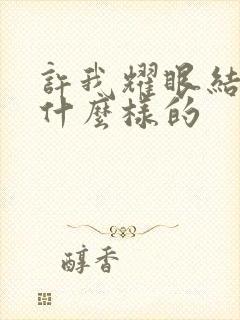 許我耀眼結
什麼樣的
醇香